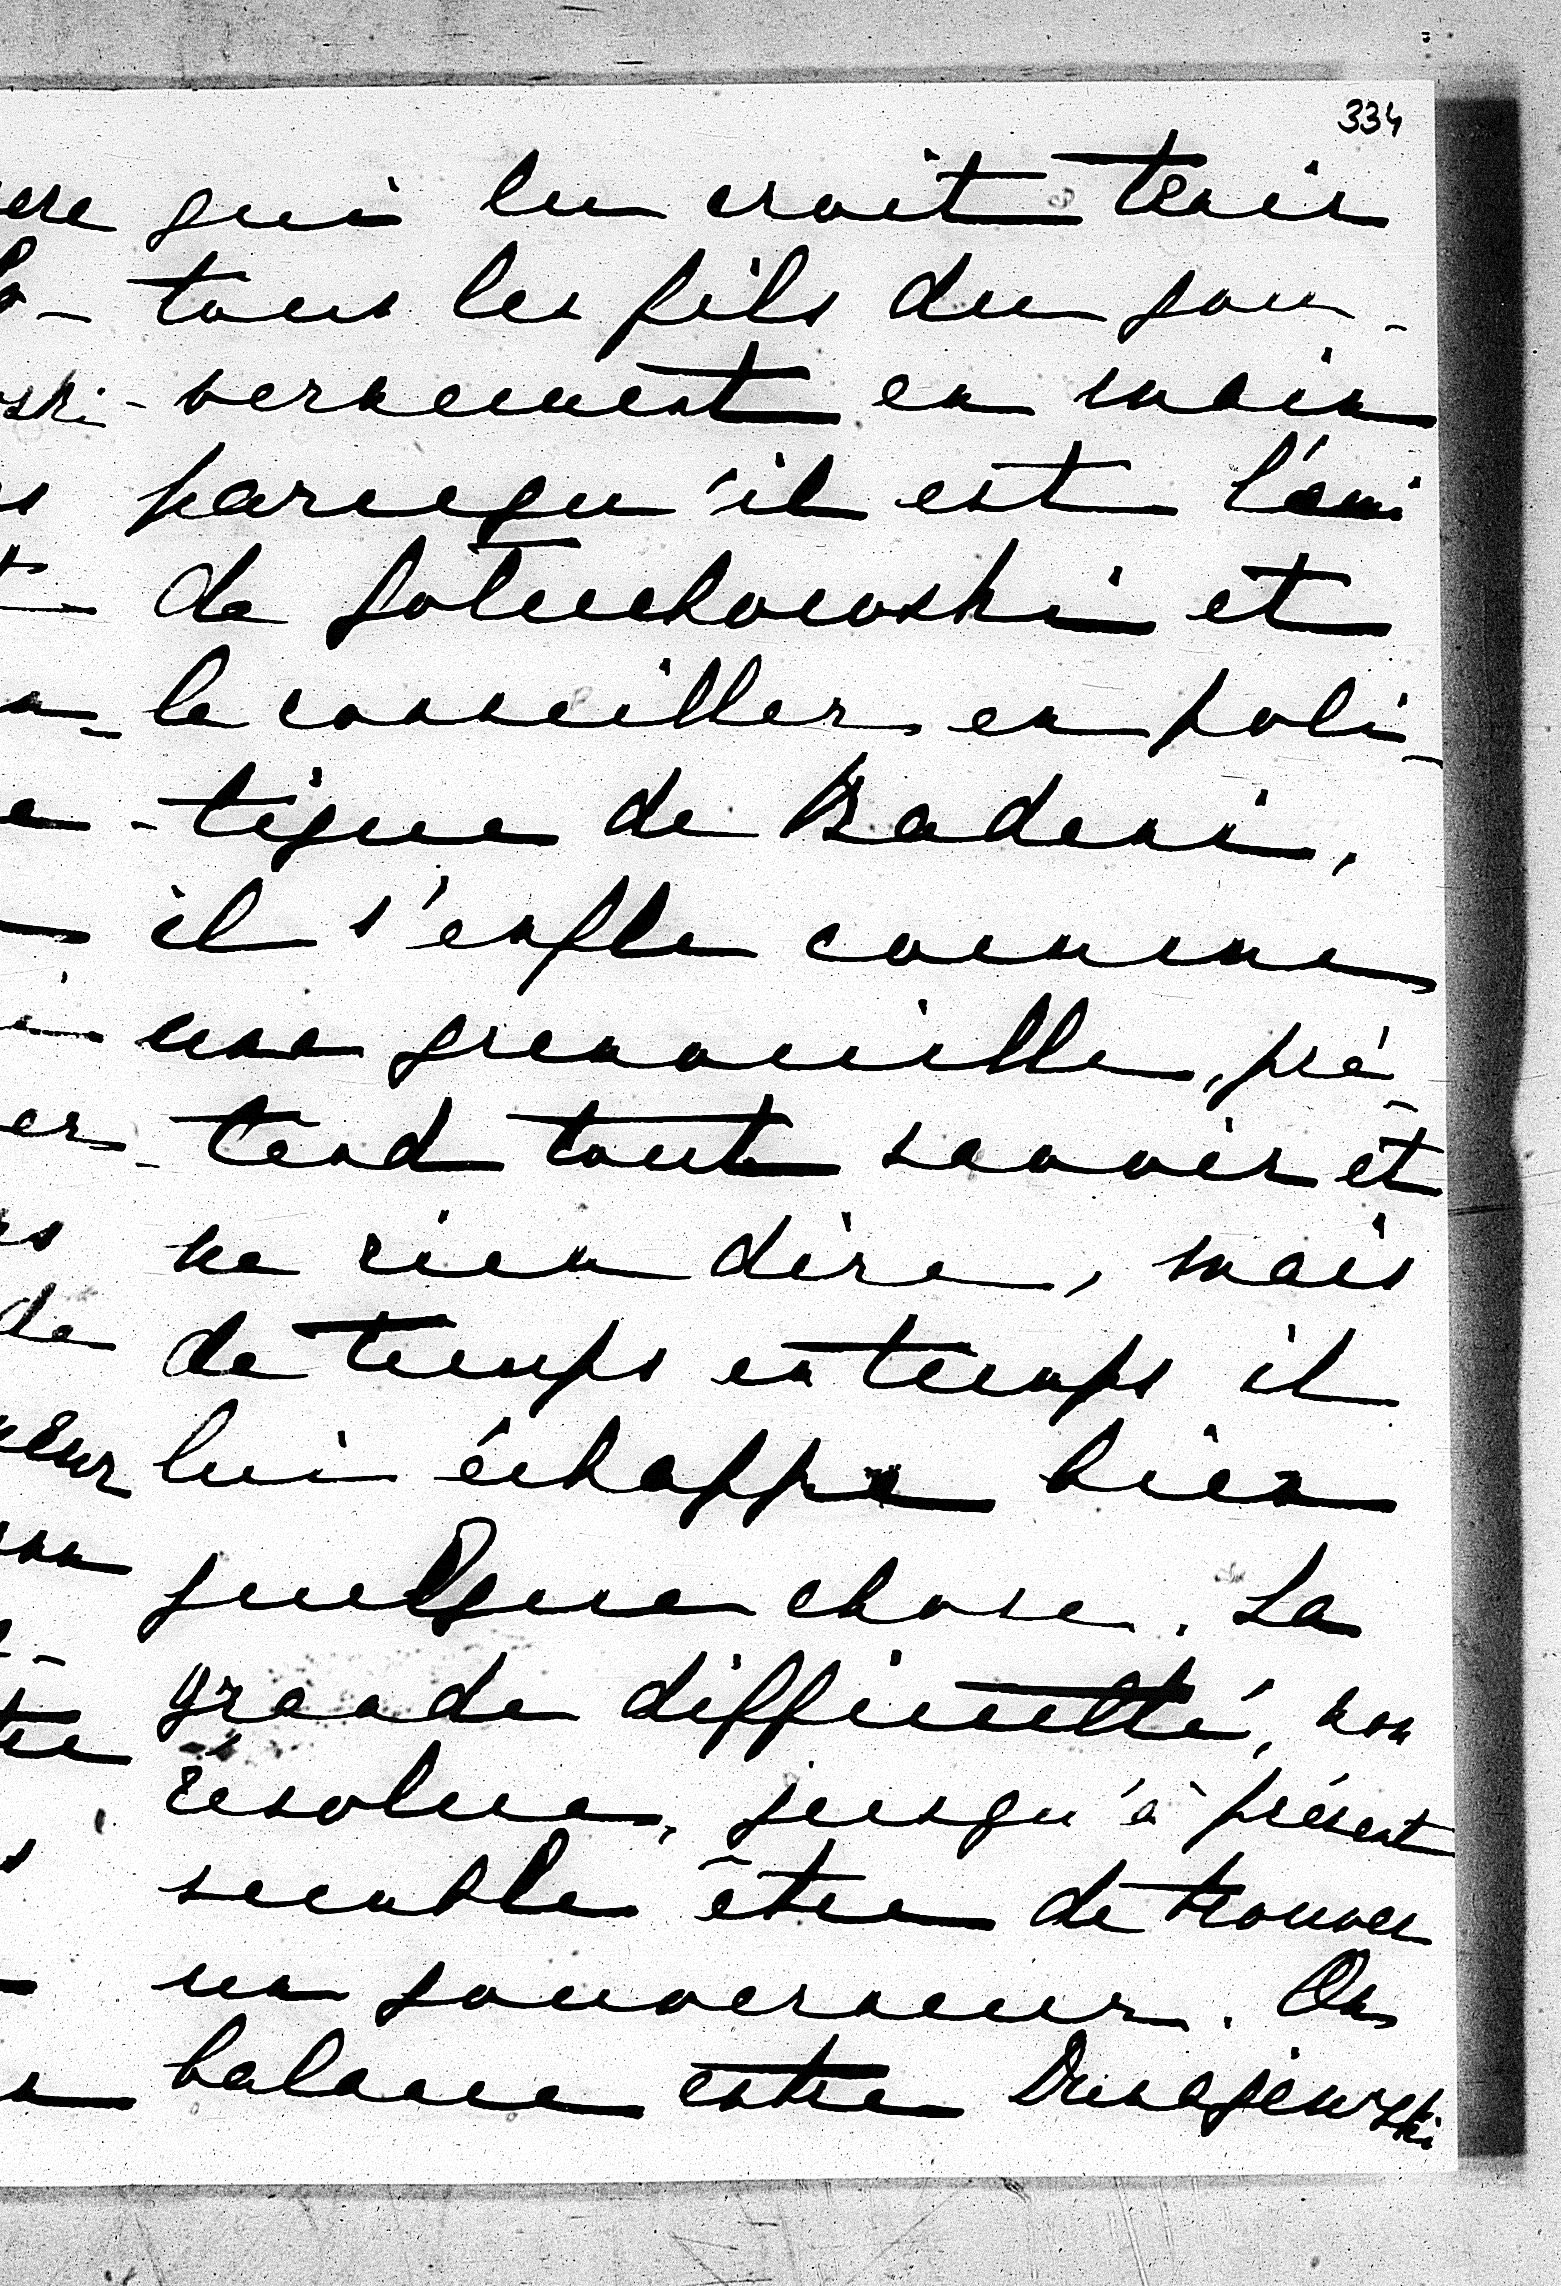 334
qui lui croit tenir
tous les fils du gou-
-vernement en main
parcequ'il est l'ami
de Goluchowski et
le conseiller en poli-
-tique de Badeni,
il s'enfle comme
une grenouille, pré-
-tend tout savoir et
ne rien dire, mais
de temps en temps il
lui échappe bien
quelque chose. La
grande difficulté, non
résolue, jusqu'à présent
semble être de trouver
un gouverneur. On
balance entre Dunajewski